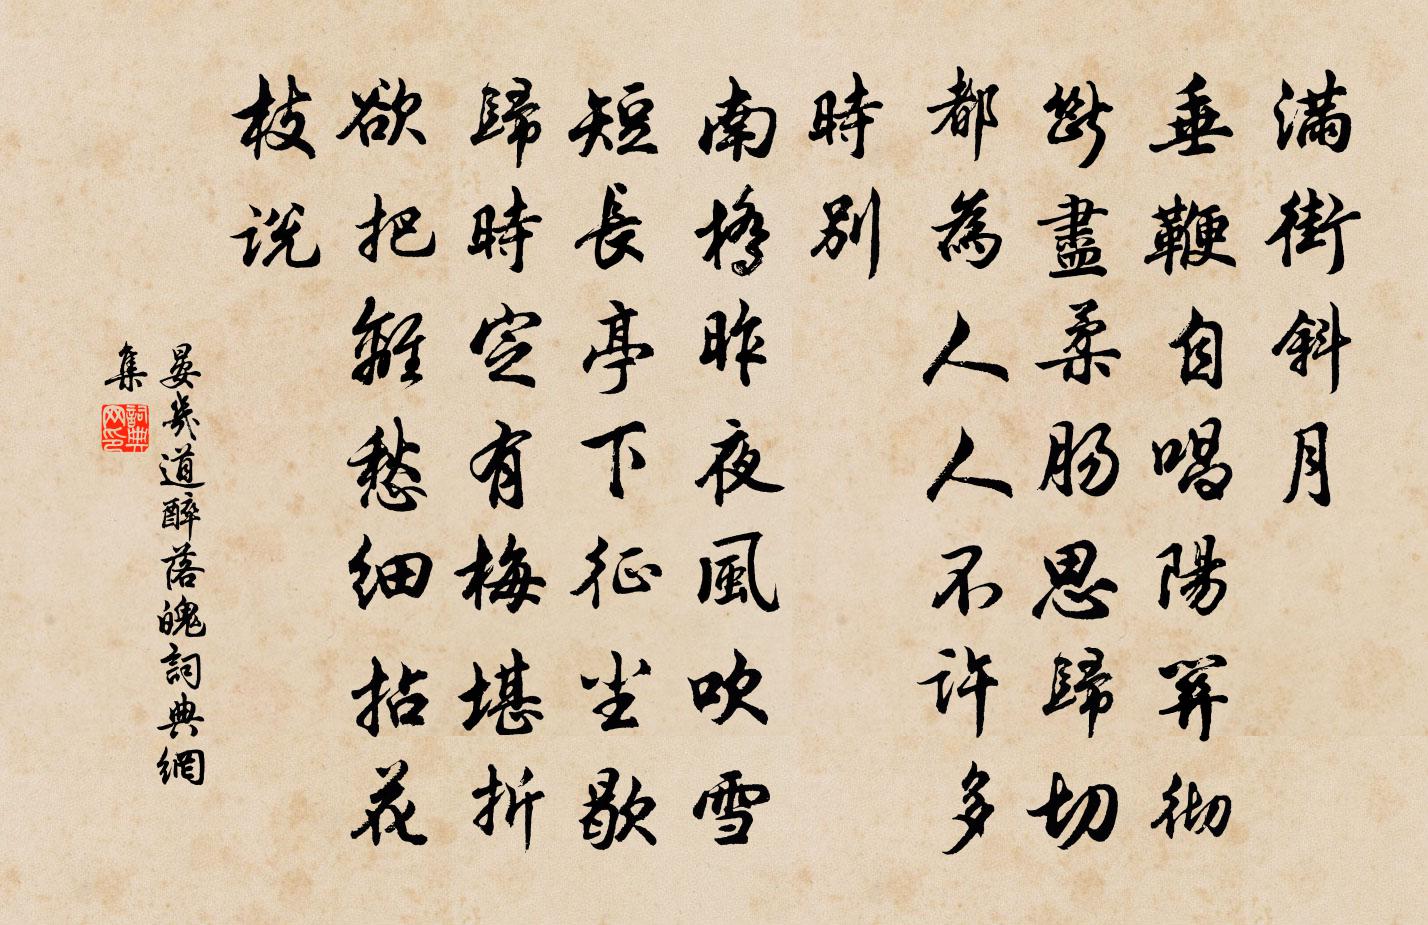 滿街斜月
垂鞭自唱陽關徹
斷盡柔腸思歸切
都為人人不許多
時別
南橋昨夜風吹雪
短長亭下征塵歇
歸時定有梅堪折
欲把離愁細拈花
枝說
晏幾道醉落魄詞典網
集
詞典
网印